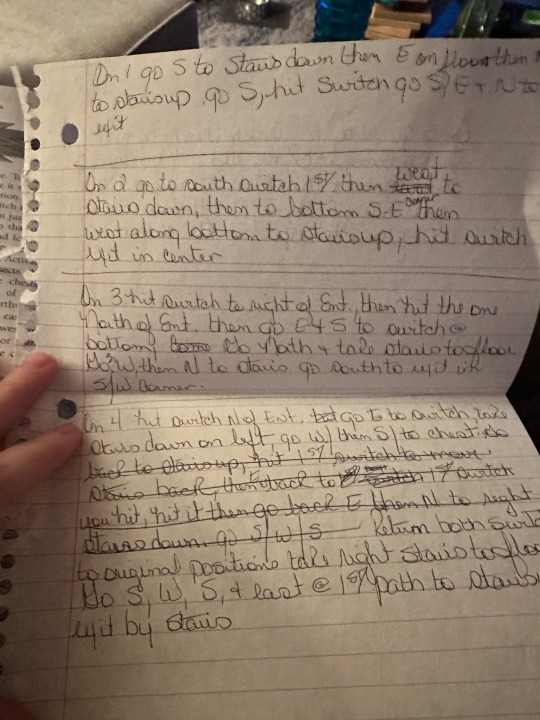 On 1 go S to stairs down then E on floor then N
to stairs up go S, hit switch go S/E + N to
exit
On 2 go to south switch 1st, then west to
stairs down, then to bottom S-E corner then
west along bottom to stairs up, hit switch
exit in center
On 3 hit switch to right of Ent., then hit the one
North of Ent. then go E + S to switch @
bottom, Go North + take stairs to floor
Go S/W, then N to stairs go south to exit in
S/W corner.
On 4 hit switch N of Ent, go E to switch, take
stairs down on left go W/ then S/ to chest. Go
back to stairs up, hit 1st switch to move
stairs back, then back to 1st switch
you hit, hit it then go back E then N to right
stairs down go S/W/S Return both
to original positions take right stairs to
Go S, W, S, + east @ 1st path to
exit by stairs
e T
e it
non
itch
it jus
to th
ad l
Activ
sects
e che
of
rth
ea
we
or
e c